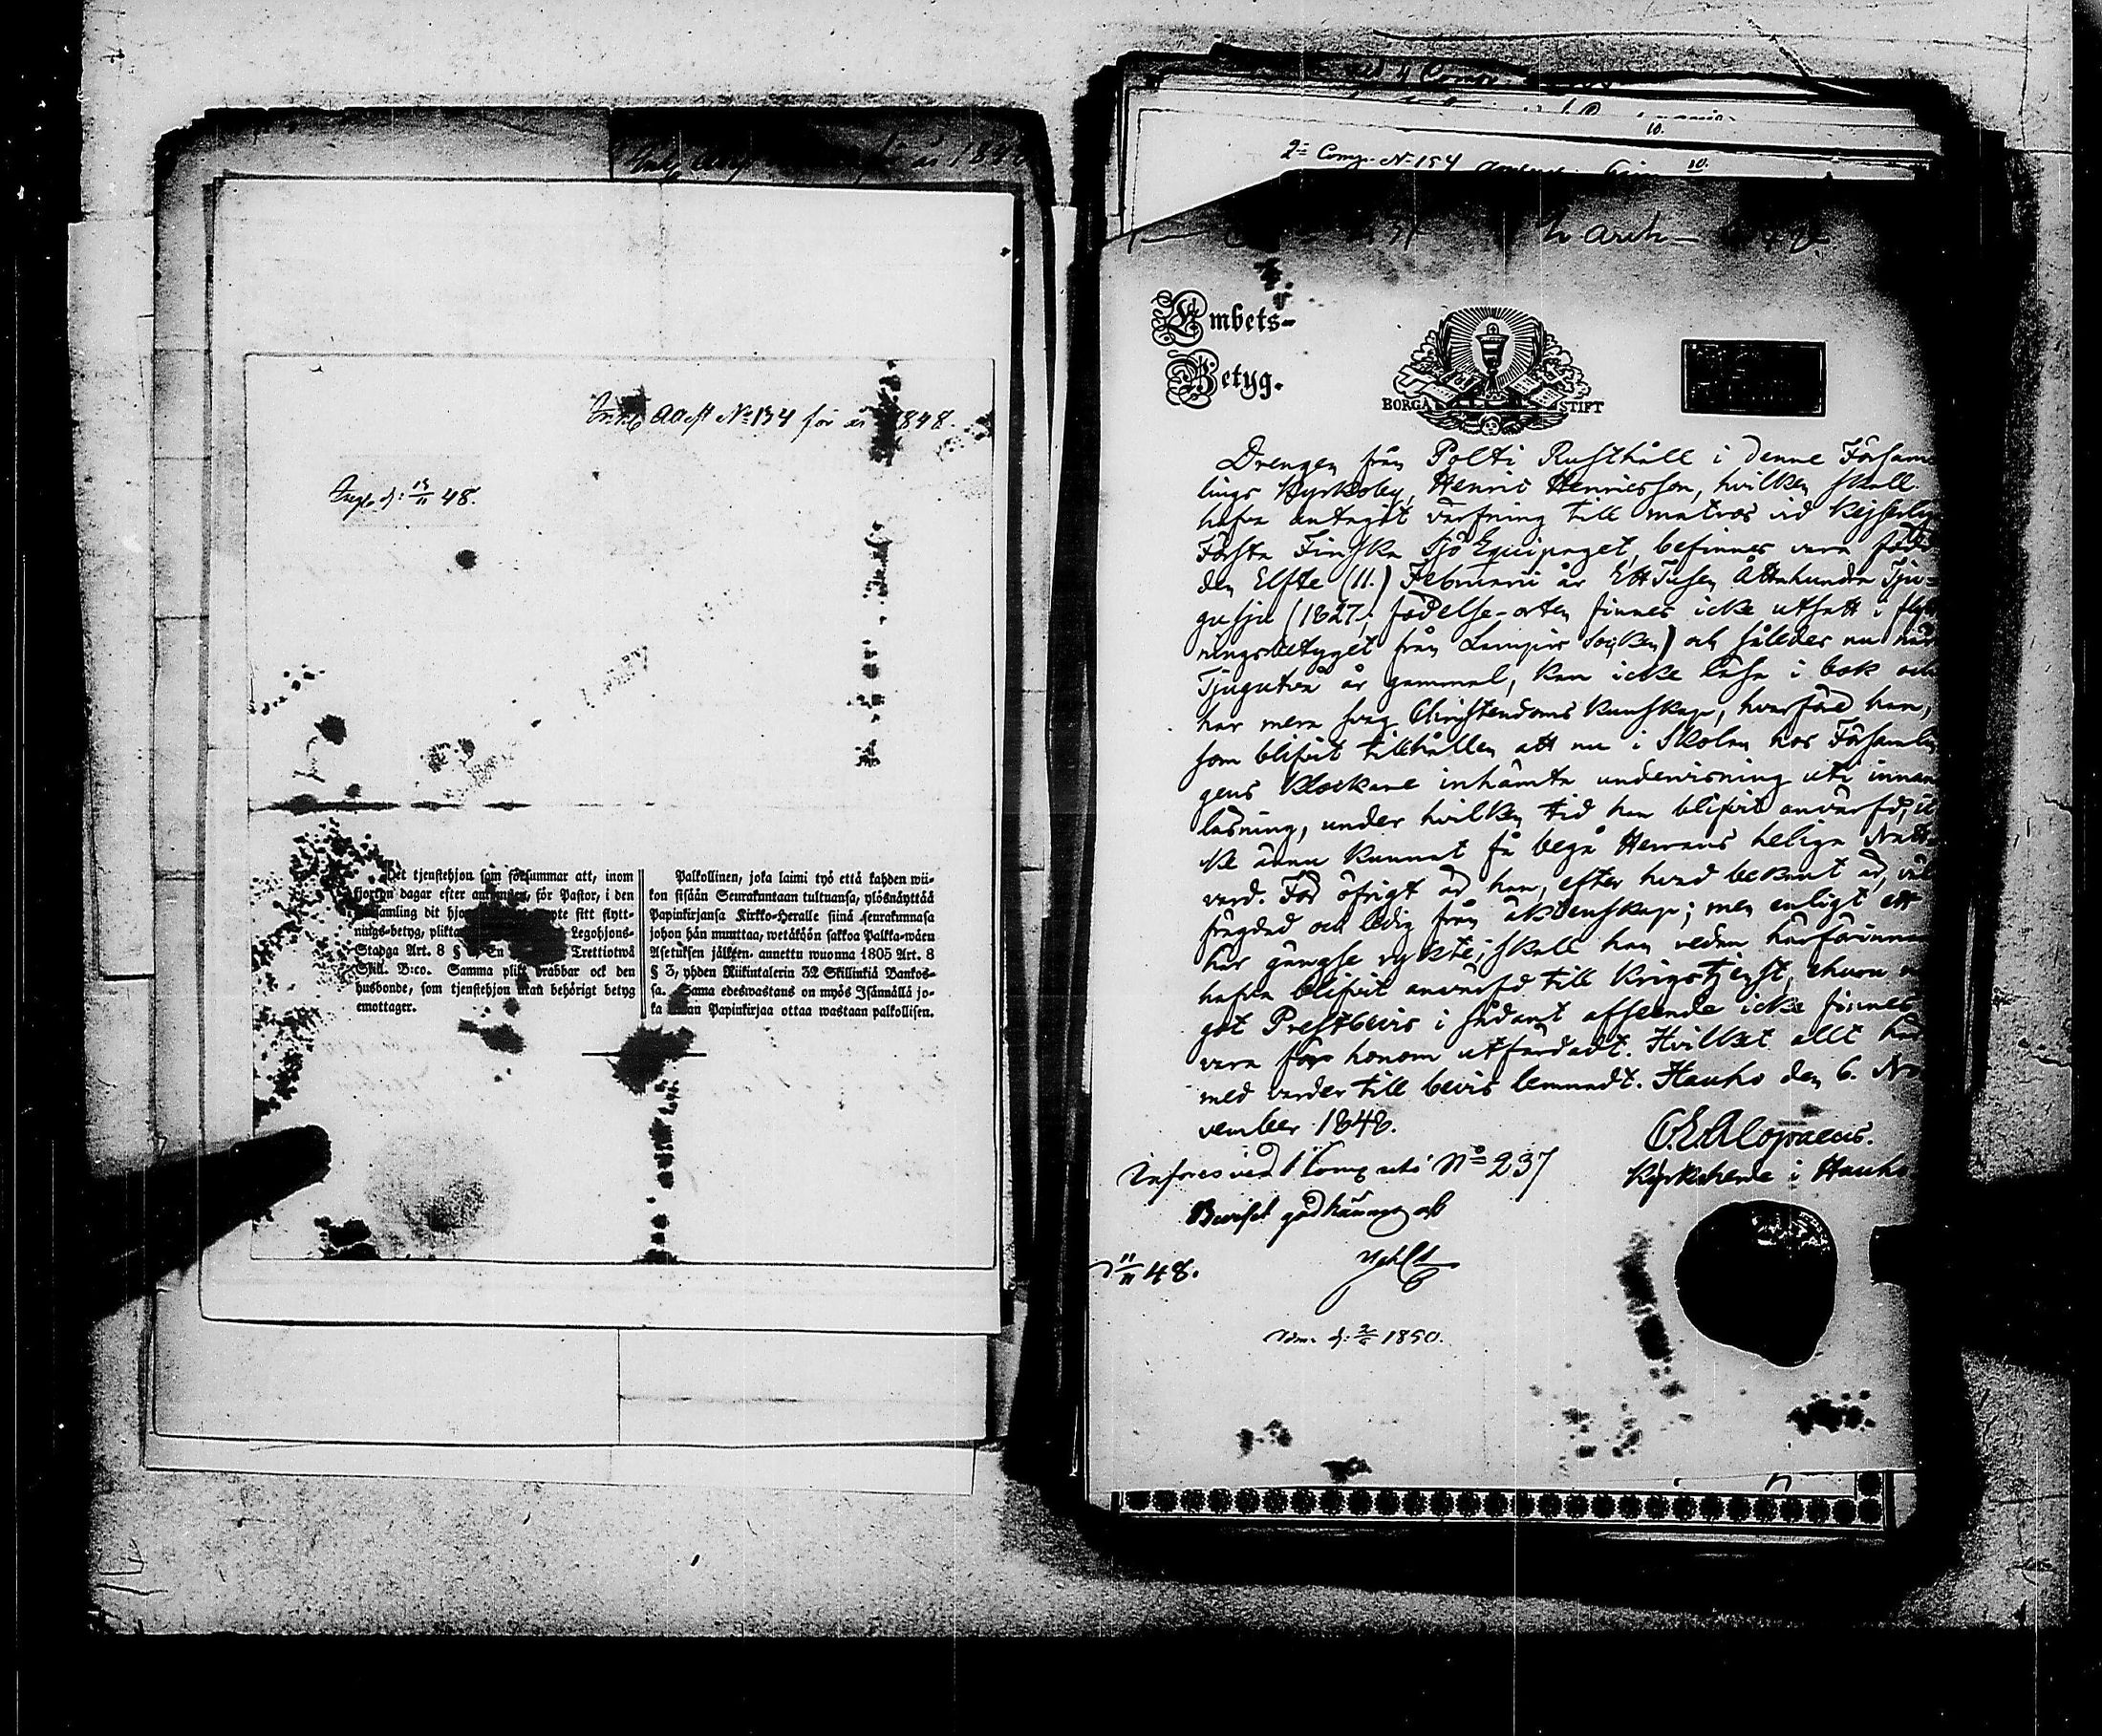 för år 18
för år 1848.
Ingk. d: 13/11 48.
Det tjenstehjon som försummar att, inom
fjorton dagar efter ankomsten, för Pastor, i den
samling dit hjon sitt flytt-
nings-betyg, plikta Legohjons-
Stadga Art. 8 § En Trettiotwå
Skill. B:co. Samma plikt drabbar ock den
husbonde, som tjenstehjon utan behörigt betyg
emottager.
Palkollinen, joka laimi lyö että kahden wii-
kon sisään Seurakuntaan tultuansa, ylösnäyttää
Papinkirjansa Kirkko-Heralle siinä seurakunnasa
johon hän muuttaa, wetäköön sakkoa Palkka-wäen
Asetuksen jälkeen, annettu wuonna 1805 Art. 8
§ 3, yhden Riikintalerin 32 Skillinkiä Bankos-
sa. Sama edeswastaus on myös Isännällä jo-
ka ilman Papinkirjaa ottaa wastaan palkollisen.
10.
2:a Comp. No 154
10.
Embets-
Betyg.
BORGÅ STIFT
Drengen från Polti Rusthåll i denne Försam
lings Kyrkoby, Henric Henricsson, hvilken skall
hafva antagit värfning till matros vid Kejserliga
Första Finska Sjö Equipaget, befinnes vara född
den Elfte (11.) Februarii år Ett Tusen Åttahundra Tju-
gusju (1827; födelse-orten finnes icke utsatt i flytt
ningsbetyget från Lampis Socken) och således nu när
Tjugutvå år gammal, kan icke läsa i bok och
har mera svag Christendoms Kunskap, hvarföre han,
som blifvit tillhållen att nu i Skolan hos Församlin
gens Klockare inhämta undervisning uti innan
läsning, under hvilken tid han blifvit anvärfd, ic
ke ännu kunnat få begå Herrans heliga Natt-
vard. För öfrigt är han, efter hvad bekant är, väl
frägdad och ledig från äktenskap; men enligt ett
här gängse rykte, skall han redan härförinnan
hafva blifvit anvärfd till Krigstjenst, ehuru nå
got Prestbevis i sådant afseende icke finnes
vara för honom utfärdadt. Hvilket allt här
med varder till bevis lemnadt. Hauho den 6. No
vember 1848.
C. E. Alopaeus.
Kyrkoherde i Hauho
Införes ved 1 Comp uti No 237
Beviset godkännes af
d 11/11 48.
d: 1850.